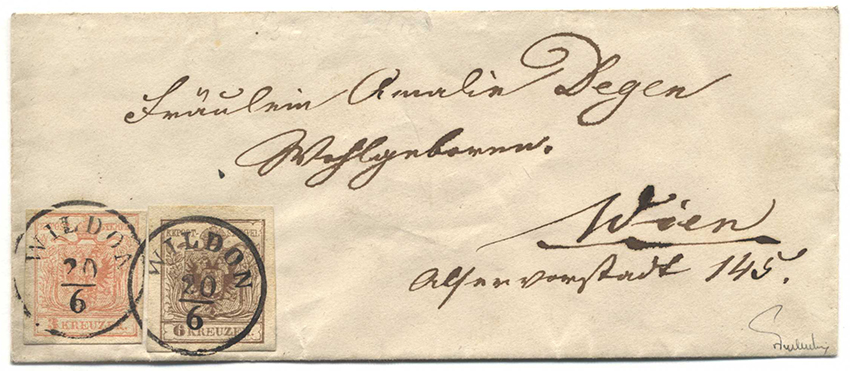 Fräulein Amalie Degen
Wohlgeboren.
Wien
Alservorstadt 145.
WILDON
20
6
3 KREUZER
WILDON
20
6
6 KREUZER